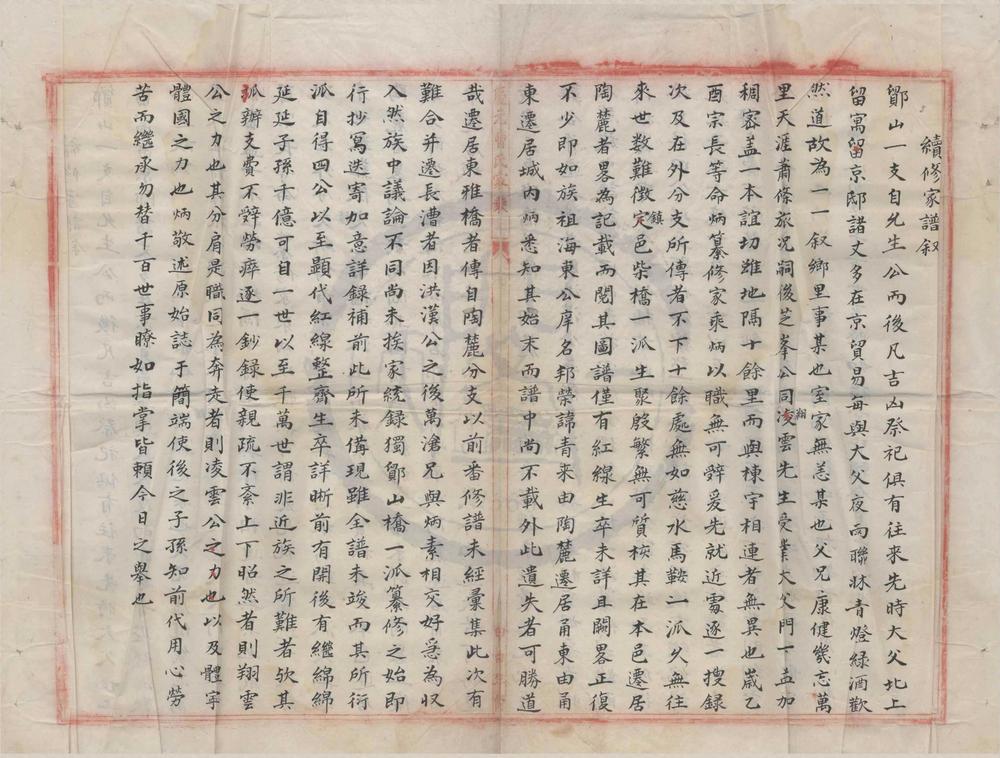 續修家譜叙
鄮山一支自允生公而後凡吉凶祭祀俱有往来先時大父北上
留寓留京邸諸丈多在京貿易每與大父夜雨聯牀青燈緑酒歡
然道故為一一叙鄉里事某也室家無恙某也父兄康健幾忘萬
里天涯蕭條旅况嗣後芝峯公同翔凌雲先生受業大父門下益加
稠密盖一本誼切雖地隔十餘里而與棟宇相連者無異也歲乙
酉宗長等命炳纂修家乘炳以職無可辤爰先就近處逐一搜録
次及在外分支所傳者不下十餘處無如慈水馬鞍一派久無往
来世数難徴定鎮邑柴橋一派生聚殷繁無可質核其在本邑遷居
陶麓者畧為記載而閲其圖譜僅有紅線生卒未詳且闕畧正復
不少即如族祖海東公庠名邦榮諱青来由陶麓遷居甬東由甬
東遷居城内炳悉知其始末而譜中尚不載外此遺失者可勝道
哉遷居東雅橋者傳自陶麓分支以前番修譜未經彙集此次有
難合并遷長漕者因洪漢公之後萬滄兄與炳素相交好急為収
入然族中議論不同尚未挨家統録獨鄮山橋一派纂修之始即
行抄寫迭寄加意詳録補前此所未備現雖全譜未竣而其所衍
派自得四公以至顕代紅線整齊生卒詳晰前有開後有繼綿綿
延延子孫千億可自一世以至千萬世謂非近族之所難者欤其
抓辦支費不辤勞瘁逐一鈔録使親疏不紊上下昭然者則翔雲
公之力也其分肩是職同為奔走者則凌雲公之力也以及體宇
體國之力也炳敬述原始誌于簡端使後之子孫知前代用心勞
苦而繼承勿替千百世事瞭如指掌皆頼今日之舉也